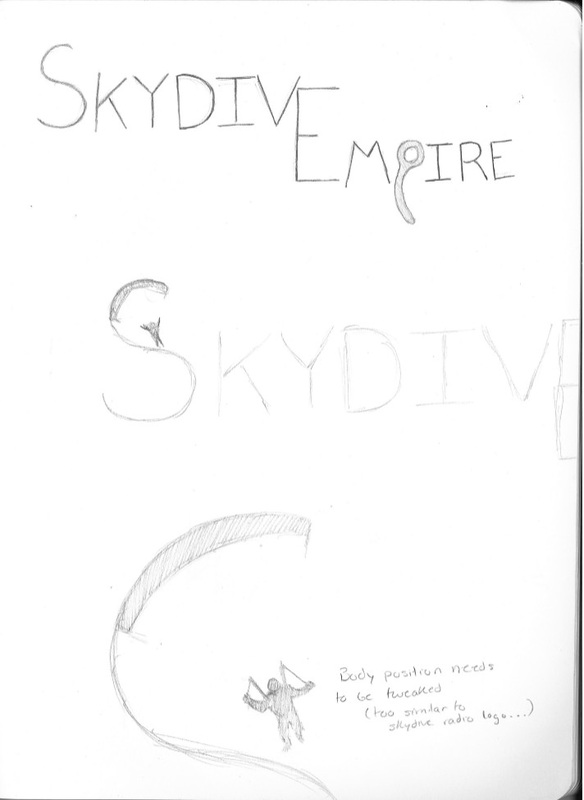 SKYDIVE
EMPIRE
SKYDIVE
Body position needs
to be tweaked
(too similar to
skydive radio logo...)